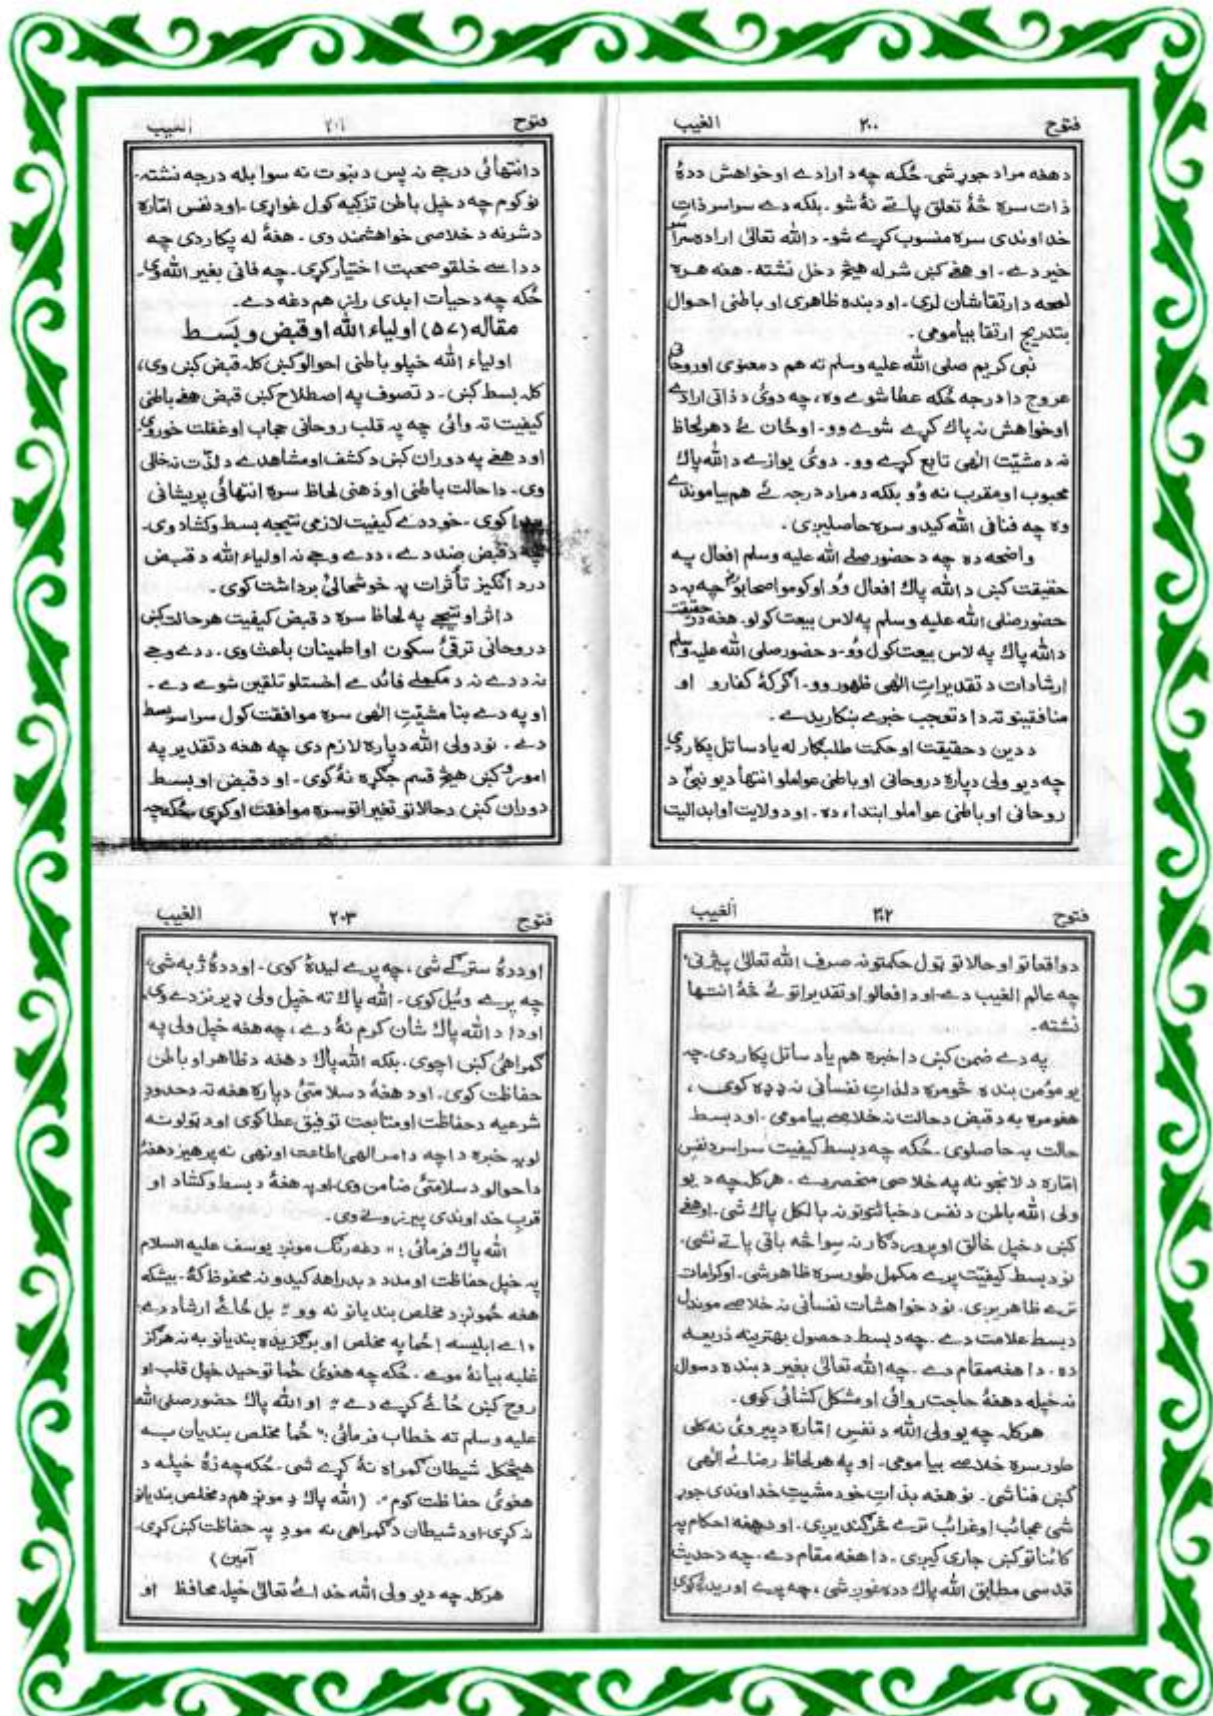 فتوح ۲۰۰ الغیب
دهغه مراد جوړ شی۔ ځکه چه د ارادے اوخواهش ددهٔ
ذات سره څهٔ تعلق پاتے نهٔ شو۔ بلکه دے سراسر ذاتِ
خداوندی سره منسوب کړے شو۔ د الله تعالیٰ اراده سراسر
خیر دے۔ او هغے کښ شر له هیڅ دخل نشته۔ هغه هره
لمحه د ارتقا شان لری۔ اود بنده ظاهری او باطنی احوال
بتدریج ارتقا بیامومی۔
نبی کریم صلی الله علیه وسلم ته هم د معنوی اوروحانی
عروج دا درجه ځکه عطا شوے وه، چه دوئ د ذاتی ارادے
اوخواهش نه پاك کړے شوے وو۔ اوځان ئے د هر لحاظ
نه د مشیّت الٰهی تابع کړے وو۔ دوئ یوازے د الله پاك
محبوب او مقرب نه وُو بلکه د مراد درجه ئے هم بیاموندے
وه چه فنا فی الله کیدو سره حاصلیږی۔
واضحه ده چه د حضور صلے الله علیه وسلم افعال په
حقیقت کښ د الله پاك افعال وُو اوکومو اصحابوؓ چه به د
حضور صلی الله علیه وسلم په لاس بیعت کولو۔ هغه در حقیقت
د الله پاك په لاس بیعت کول وُو۔ د حضور صلی الله علیه وسلم
ارشادات د تقدیراتِ الٰهی ظهور وو۔ اگرکهٔ کفارو او
منافقینو ته دا د تعجب خبرے ښکاریدے۔
د دین د حقیقت اوحکمت طلبگار له یاد ساتل پکار دی۔
چه د یو ولی دپاره د روحانی او باطنی عواملو انتها د یو نبیؑ د
روحانی او باطنی عواملو ابتداء ده۔ اود ولایت اوابدالیت
فتوح ۲۰۱ الغیب
د انتهائی درجے نه پس د نبوت نه سوا بله درجه نشته۔
نو کوم چه د خپل باطن تزکیه کول غواړی۔ اود نفس امّاره
د شر نه د خلاصی خواهشمند وی۔ هغهٔ له پکار دی چه
د داسے خلقو صحبت اختیار کړی۔ چه فانی بغیر الله وی۔
ځکه چه د حیات ابدی راز هم دغه دے۔
مقاله (۵۷) اولیاء الله او قبض و بَسط
اولیاء الله خپلو باطنی احوالو کښ کله قبض کښ وی،
کله بسط کښ۔ د تصوف په اصطلاح کښ قبض هغے باطنی
کیفیت ته وائی چه په قلب روحانی حجاب اوغفلت خور وی۔
اود هغے په دوران کښ د کشف او مشاهدے د لذّت نه خالی
وی۔ دا حالت باطنی اوذهنی لحاظ سره انتهائی پریشانی
پیدا کوی۔ خو ددے کیفیت لازمی نتیجه بسط وکشاد وی۔
چه د قبض ضد دے، ددے وجے نه اولیاء الله د قبض
درد انگیز تأثرات په خوشحالئ برداشت کوی۔
د اثر او نتیجے په لحاظ سره د قبض کیفیت هر حالت کښ
د روحانی ترقئ سکون او اطمینان باعث وی۔ ددے وجے
نه ددے نه د مکملے فائدے اخستلو تلقین شوے دے۔
او په دے بنا مشیّتِ الٰهی سره موافقت کول سراسر بسط
دے۔ نو د ولی الله دپاره لازم دی چه هغه د تقدیر په
امورو کښ هیڅ قسم جگړه نهٔ کوی۔ او د قبض او بسط
دوران کښ د حالاتو تغیراتو سره موافقت اوکړی ځکه چه
فتوح ۲۰۲ الغیب
د واقعاتو اوحالاتو ټول حکمتونه صرف الله تعالیٰ پیژنی،
چه عالم الغیب دے۔ اود افعالو او تقدیراتو ئے څهٔ انتها
نشته۔
په دے ضمن کښ دا خبره هم یاد ساتل پکار دی۔ چه
یو مؤمن بنده څومره د لذاتِ نفسانی نه ډډه کوی،
هغومره به د قبض د حالت نه خلاصے بیامومی۔ اود بسط
حالت به حاصلوی۔ ځکه چه د بسط کیفیت سراسر د نفسِ
امّاره د لانجو نه په خلاصی منحصر دے۔ هرکله چه د یو
ولی الله باطن د نفس د خباثتونو نه بالکل پاك شی۔ اوهغے
کښ د خپل خالق او پروردگار نه سوا څه باقی پاتے نشی۔
نو د بسط کیفیّت پرے مکمل طور سره ظاهر شی۔ اوکرامات
ترے ظاهریږی۔ نو د خواهشات نفسانی نه خلاصے موندل
د بسط علامت دے۔ چه د بسط د حصول بهترینه ذریعه
ده۔ دا هغه مقام دے۔ چه الله تعالیٰ بغیر د بنده د سوال
نه خپله د هغهٔ حاجت روائی او مشکل کشائی کوی۔
هرکله چه یو ولی الله د نفسِ امّاره د پیروئ نه کلی
طور سره خلاصے بیامومی۔ او په هر لحاظ رضائے الٰهی
کښ فنا شی۔ نو هغه بذاتِ خود مشیتِ خداوندی جوړ
شی عجائب اوغرائب ترے څرگندیږی۔ او د هغه احکام په
کائناتو کښ جاری کیږی۔ دا هغه مقام دے۔ چه د حدیث
قدسی مطابق الله پاك ددهٔ غوږ شی، چه پرے اوریدهٔ کوی
فتوح ۲۰۳ الغیب
اوددهٔ سترگے شی، چه پرے لیدهٔ کوی۔ اوددهٔ ژبه شی،
چه پرے وئیل کوی۔ الله پاك ته خپل ولی ډیر نزدے وی،
او دا د الله پاك شان کرم نهٔ دے، چه هغه خپل ولی په
گمراهئ کښ اچوی۔ بلکه الله پاك د هغه د ظاهر او باطن
حفاظت کوی۔ اود هغهٔ د سلامتئ دپاره هغه ته د حدودِ
شرعیه د حفاظت او متابعت توفیق عطا کوی اود ټولو نه
لویه خبره دا چه د امر الهی اطاعت اونهی نه پرهیز د هغهٔ
د احوالو د سلامتئ ضامن وی او په هغهٔ د بسط وکشاد او
قرب خداوندی پیرزونے وی۔
الله پاك فرمائی:" دغه رنگ مونږ یوسف علیه السلام
په خپل حفاظت او مدد د بدراهه کیدو نه محفوظ کهٔ۔ بیشکه
هغه څمونږ د مخلص بندیانو نه وو" بل ځائے ارشاد دے:
"اے ابلیسه! ځما په مخلص او برگزیده بندیانو به ته هرگز
غلبه بیا نهٔ مومے۔ ځکه چه هغوئ ځما توحید خپل قلب او
روح کښ ځائے کړے دے" او الله پاك حضور صلی الله
علیه وسلم ته خطاب فرمائی:" ځما مخلص بندیان به
هیڅکله شیطان گمراه نهٔ کړے شی۔ ځکه چه زهٔ خپله د
هغوئ حفاظت کوم"۔ (الله پاك دِ مونږ هم د مخلص بندیانو
نه کړی۔ اود شیطان د گمراهئ نه مو دِ په حفاظت کښ کړی۔
آمین)
هرکله چه د یو ولی الله خدائے تعالیٰ خپله محافظ او